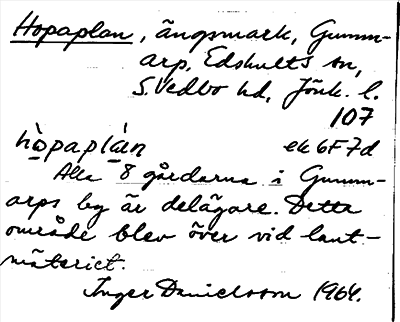 Hopaplan, ängsmark, Gumm-
arp, Edshults sn,
S. Vedbo hd, Jönk. l.
107
hòpaplán
ek 6F7d
Alla 8 gårdarna i Gumm-
arps by är delägare. Detta
område blev över vid lant-
mäteriet.
Inger Danielsson 1964.